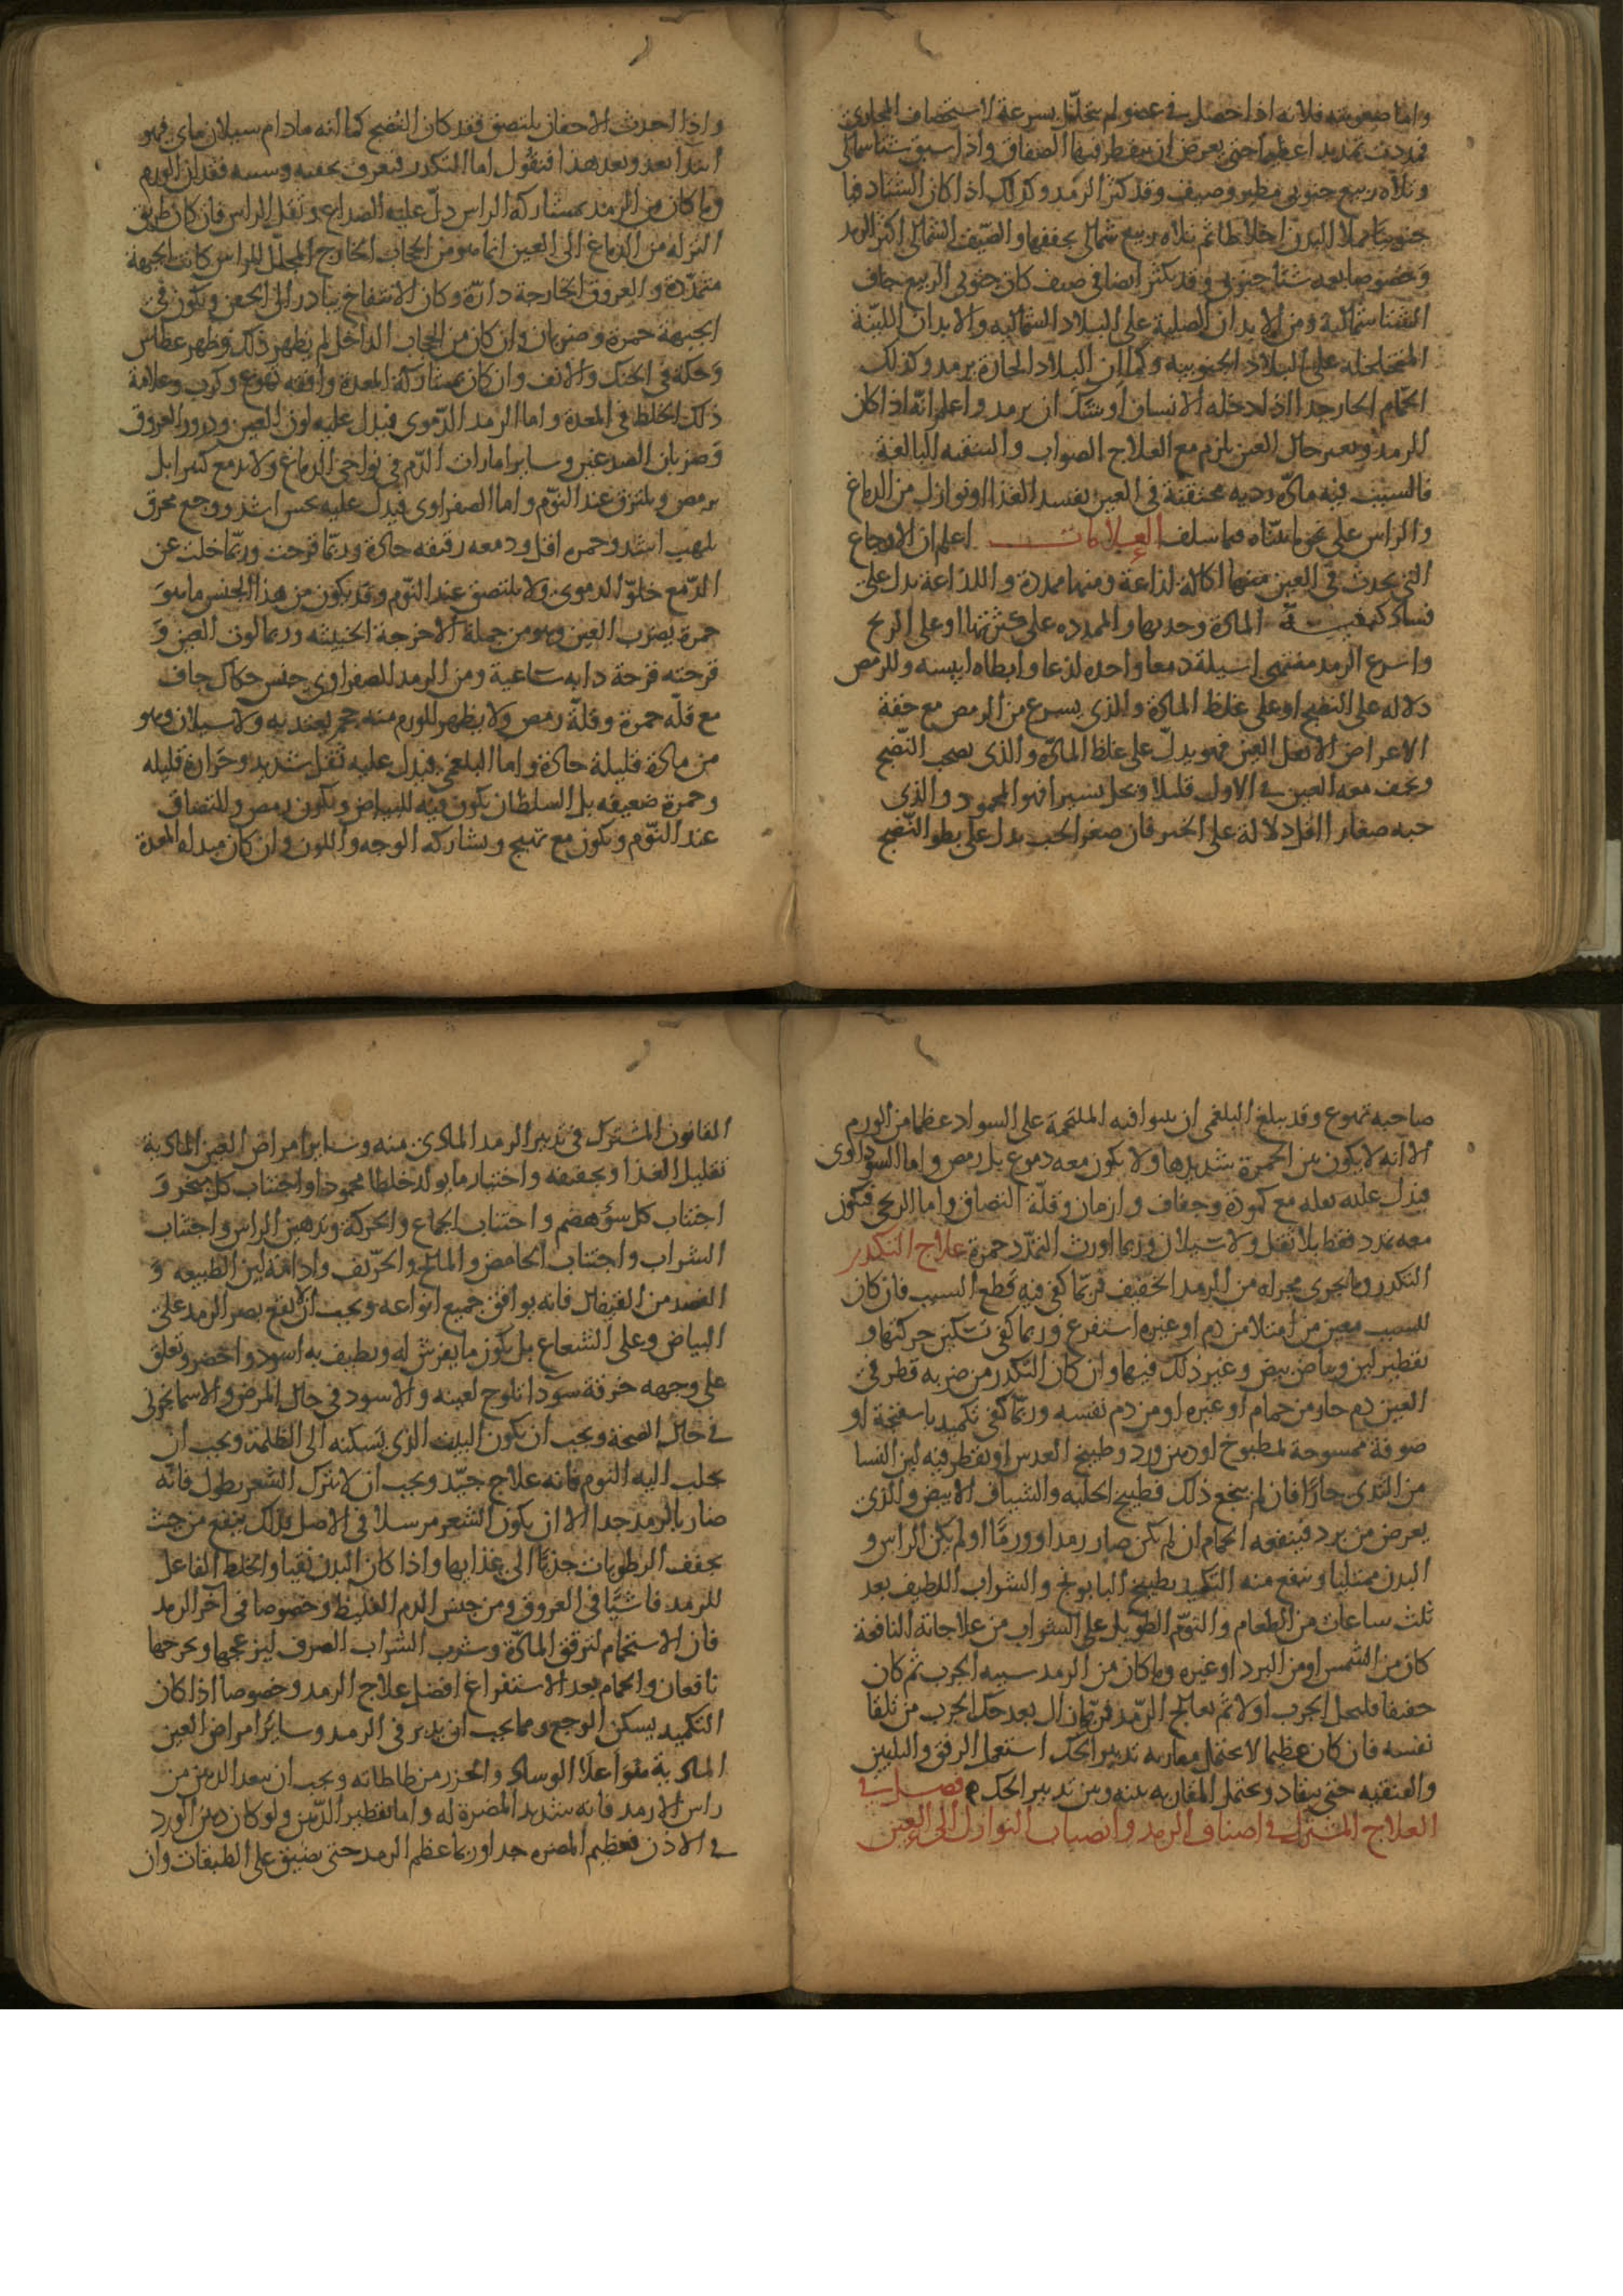 واما صعوبته فلانه اذا حصل في عضو لم يتحلل بسرعة لاستحصاف المجارى
فمددت تمديدا عظيما حتى يعرض ان يتقطر منها الصفاق واذا سبق شتا شمالى
وتلاه ربيع جنوبى مطير وصيف ومد كثر الرمد وكذلك اذا كان الشتاء دفيا
جنوبيا يملا البدن اخلاطا ثم تلاه ربيع شمالى يحقنها والصيف الشمالى اكثر الرمد
وخصوصا بعد شتا جنوبى وقد يكثر ايضا فى صيف كان جنوبى الربيع جاف
الشتا شمالية ومن الابدان الصلبة على البلاد الشمالية والابدان اللينة
المتخلخلة على البلاد الجنوبية وكما ان البلاد الحارة يرمد وكذلك
الحمام الحار جدا اذا دخله الانسان اوشك ان يرمد واعلم انه اذا كان
الرمد وتغير حال العين يلزم مع العلاج الصواب والتنقية البالغة
فالسبب فيه مادة ردية محتقنة فى العين يفسد الغذا او نوازل من الدماغ
والراس على نحو ما بيناه فيما سلف العلامات اعلم ان الاوجاع
التى يحدث فى العين منها اكالة لذاعة ومنها ممددة واللذاعة يدل على
فساد كيفية المادة وحدتها والممدده على كثرتها او على الريح
واسرع الرمد منتهى اسيلة دمعا واحده لذعا وابطاه ايبسه والرمص
دلاله على النضج او على غلظ المادة والذى يسرع من الرمص مع خفة
الاعراض الا ثقل العين فهو يدل على غلظ المادة والذى يصحب النضج
ويخف معه العين فى الاول قليلا وتحل يسيرا فهو المحمود والذى
حبه صغار اقل دلالة على الخير فان صغر الحب يدل على بطو النضج
واذا اخذت الاجفان يلتصق فقد كان النضج كما انه مادام سيلان ماى فهو
ابتدا بعد وبعد هذا فنقول اما التكدر فيعرف بخفته وسببه وفقدان الورم
وما كان من الرمد بمشاركة الراس دل عليه الصداع وثقل الراس فان كان طريق
النزلة من الدماغ الى العين انما هو من الحجاب الخارج المجلل للراس كانت الجبهة
متمددة والعروق الخارجة دارة وكان الانتفاخ يبادر الى الجفن ويكون فى
الجبهة حمرة وضربان وان كان من الحجاب الداخل لم يظهر ذلك وظهر عطاس
وحكة فى الحنك والانف وان كان بمشاركة المعدة وافقه تهوع وكرب وعلامة
ذلك الخلط فى المعدة واما الرمد الدموى فيدل عليه لون العين ودرور العروق
وضربان الصدغين وساير امارات الدم فى نواحى الدماغ ولا يدمع كثيرا بل
يرمص ويلتزق عند النوم واما الصفراوى فيدل عليه نخس اشد ووجع محرق
ملهب اشد وحمره اقل ودمعه رقيقه حادة وربما قرحت وربما خلت عن
الدمع خلو الدموى ولا يلتصق عند النوم وقد يكون من هذا الجنس ما هو
حمرة يضرب العين وهو من جملة الامزجة الخبيثه وربما لون العين و
قرحته قرحة دابه ساعية ومن الرمد الصفراوى جنس حكاك جاف
مع قلة حمرة وقلة رمص ولا يظهر الورم منه حجم يعتد به ولا سيلان وهو
من مادة قليلة حادة واما البلغمى فيدل عليه ثقل شديد وحرارة قليله
وحمرة ضعيفه بل السلطان يكون فيه للبياض ويكون رمص والتصاق
عند النوم ويكون مع تهيج ويشاركه الوجه واللون وان كان مبداه المعدة
صاحبه تهوع وقد يبلغ البلغمى ان يبتوا فيه الملتحمة على السواد عظما من الورم
الا انه لا يكون بين الحمرة شديدها ولا يكون معه دموع بل رمص واما السوداوى
فيدل عليه ثقله مع كمودة وجفاف وازمان وقلة التصاق واما الريحى فيكون
معه تمدد فقط بلا ثقل ولا سيلان وربما اورث التمدد حمرة علاج التكدر
التكدر وما يجرى مجراه من الرمد الخفيف فربما كفى فيه قطع السبب فان كان
للسبب معين من امتلا من دم او غيره استفرغ وربما كفى تسكين حركتها و
تقطير لبن وبياض بيض وغير ذلك فيها وان كان التكدر من ضربه قطر فى
العين دم حار من حمام او غيره او من دم نفسه وربما كفى تكميد باسفنجة او
صوفة ممسوحة لمطبوخ او دهن ورد وطبيخ العدس او يقطر فيه لبن النسا
من الثدى حارا فان لم ينجع ذلك فطبيخ الحلبه والشياف الابيض والذى
يعرض من برد فينفعه الحمام ان لم يكن صار رمدا وورما او لم يكن الراس و
البدن ممتليا وينفع منه التكميد بطبيخ البابونج والشراب اللطيف بعد
ثلث ساعات من الطعام والنوم الطويل على الشراب من علاجاته النافعة
كان من الشمس او من البرد او غيره وما كان من الرمد سببه الجرب ثم كان
خفيفا فليحل الجرب اولا ثم يعالج الرمد فربما زال بعد حك الجرب من تلقا
نفسه فان كان عظيما لا يحتمل مقاربه تدبير الحك استعمل الرفق والتليين
والتنقيه حتى ينقاد ويحتمل المقاربه بينه وبين تدبير الحك فصل فى
العلاج المشترك فى اصناف الرمد وانصباب النوازل الى العين
القانون المشترك فى تدبير الرمد المادى منه وساير امراض العين المادية
تقليل الغذا وتخفيفه واختيار ما يولد خلطا محمودا واجتناب كل مبخر و
اجتناب كل سوء هضم واجتناب الجماع والحركة وتدهين الراس واجتناب
الشراب واجتناب الحامض والمالح والحريف وادامة لين الطبيعه و
الفصد من القيفال فانه يوافق جميع انواعه ويجب ان لا يقع بصر الرمد على
البياض وعلى الشعاع بل يكون ما يفرش له ويطيف به اسود واخضر ويعلق
على وجهه خرقة سودا تلوح لعينه والاسود فى حال المرض والاسمانجونى
فى حال الصحة ويجب ان يكون البيت الذى يسكنه الى الظلمة ويجب ان
يجلب اليه النوم فانه علاج جيد ويجب ان لا يترك الشعر يطول فانه
ضار بالرمد جدا الا ان يكون الشعر مرسلا فى الاصل فذلك ينفع من حيث
يجفف الرطوبات جذبا الى غذايها واذا كان البدن نقيا والخلط الفاعل
للرمد فاشيا فى العروق ومن جنس الدم الغليظ وخصوصا فى اخر الرمد
فان الاستحمام لترقق المادة وشرب الشراب الصرف ليزعجها ويخرجها
نافعان والحمام بعد الاستفراغ افضل علاج الرمد وخصوصا اذا كان
التكميد يسكن الوجع ومما يجب ان يدبر فى الرمد وساير امراض العين
المادية هو اعلاء الوساد والحذر من طاطاته ويجب ان يبعد الدهن من
راس الارمد فانه شديد المضرة له واما تقطير الدهن ولو كان دهن الورد
فى الاذن فعظيم المضره جدا وربما عظم الرمد حتى يضيق على الطبقات وان